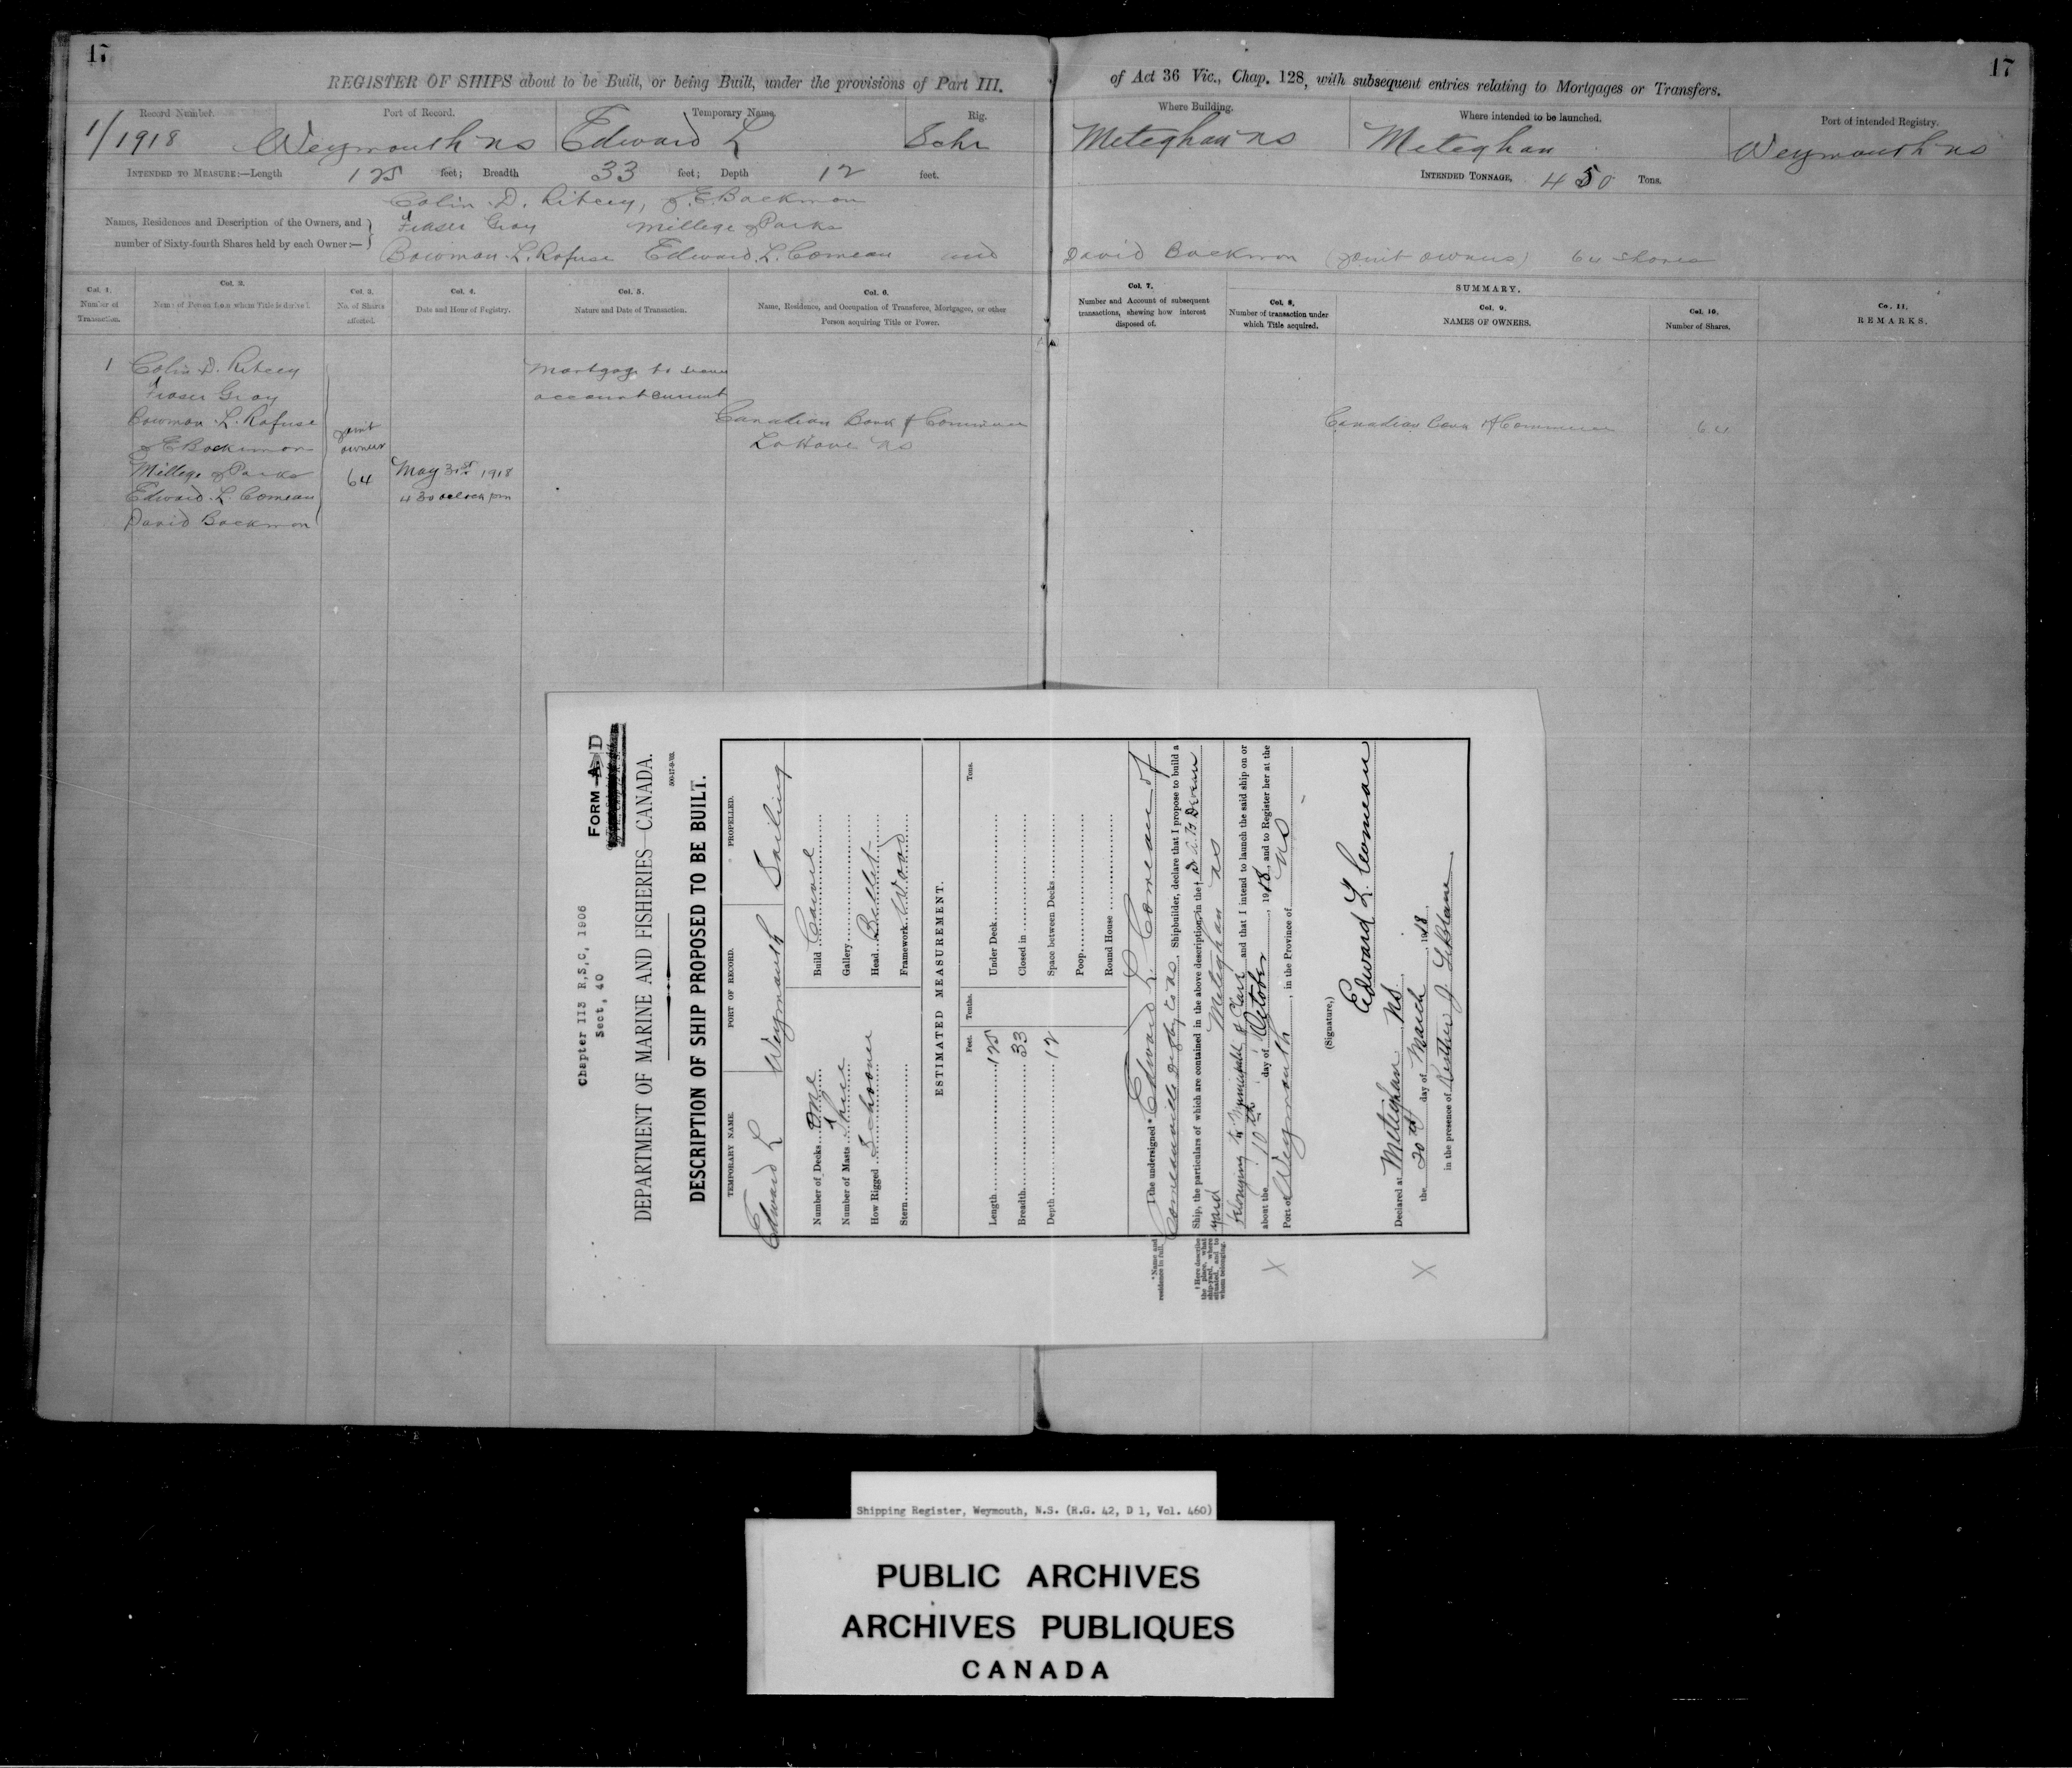 17
17
REGISTER OF SHIPS about to be Built, or being Built, under the provisions of Part III.
of Act 36 Vic., Chap. 128, with subsequent entries relating to Mortgages or Transfers.
Record Number.
Port of Record.
Temporary Name.
Rig.
Where Building.
Where intended to be launched.
Port of intended Registry.
1/1918
Weymouth NS
Edward L
Schr
Meteghan NS
Meteghan
Weymouth NS
INTENDED TO MEASURE:—Length 125 feet; Breadth 33 feet; Depth 12 feet.
INTENDED TONNAGE, 450 Tons.
Names, Residences and Description of the Owners, and
number of Sixty-fourth Shares held by each Owner:—
Colin D. Ritcey, J. E Backmon
Fraser Gray Millege J Parks
Bowman L. Rafuse Edward L. Comeau and
David Backmon (joint owners) 64 shares
Col. 1.
Number of
Transaction.
Col. 2.
Name of Person from whom Title is derived.
Col. 3.
No. of Shares
affected.
Col. 4.
Date and Hour of Registry.
Col. 5.
Nature and Date of Transaction.
Col. 6.
Name, Residence, and Occupation of Transferee, Mortgagee, or other
Person acquiring Title or Power.
Col. 7.
Number and Account of subsequent
transactions, shewing how interest
disposed of.
SUMMARY.
Col. 8,
Number of transaction under
which Title acquired.
Col. 9.
NAMES OF OWNERS.
Col. 10.
Number of Shares.
Co, 11.
REMARKS.
1
Colin D. Ritcey
Fraser Gray
Bowman L. Rafuse
J E Backmon
Millege J Parks
Edward L. Comeau
David Backmon
joint
owners
64
May 31st 1918
4 30 oclock pm
Mortgage to secure
account current
Canadian Bank of Commerce
LaHave NS
Canadian Bank of Commerce
64
Chapter 113 R,S,C, 1906
Sect, 40
FORM A D
DEPARTMENT OF MARINE AND FISHERIES—CANADA.
500-17-9-'03.
DESCRIPTION OF SHIP PROPOSED TO BE BUILT.
TEMPORARY NAME.
PORT OF RECORD.
PROPELLED.
Edward L
Weymouth
Sailing
Number of Decks One
Number of Masts Three
How Rigged Schooner
Stern
Build Carvel
Gallery
Head Billet
Framework Wood
ESTIMATED MEASUREMENT.
Feet.
Tenths.
Tons.
Length 125
Breadth 33
Depth 12
Under Deck
Closed in
Space between Decks
Poop
Round House
I the undersigned * Edward L. Comeau of
Comeauville Digby Co NS, Shipbuilder, declare that I propose to build a
Ship, the particulars of which are contained in the above description, in the †
yard Meteghan NS
belonging to Municipality of Clare and that I intend to launch the said ship on or
about the 10th day of October, 1918, and to Register her at the
Port of Weymouth, in the Province of NS
* Name and
residence in full.
† Here describe
the place, what
ship-yard, where
situated, and to
whom belonging.
X
X
(Signature,)
Edward L. Comeau
Declared at Meteghan NS
the 20th day of March 1918
in the presence of J. LeBlanc
Shipping Register, Weymouth, N.S. (R.G. 42, D 1, Vol. 460)
PUBLIC ARCHIVES
ARCHIVES PUBLIQUES
CANADA